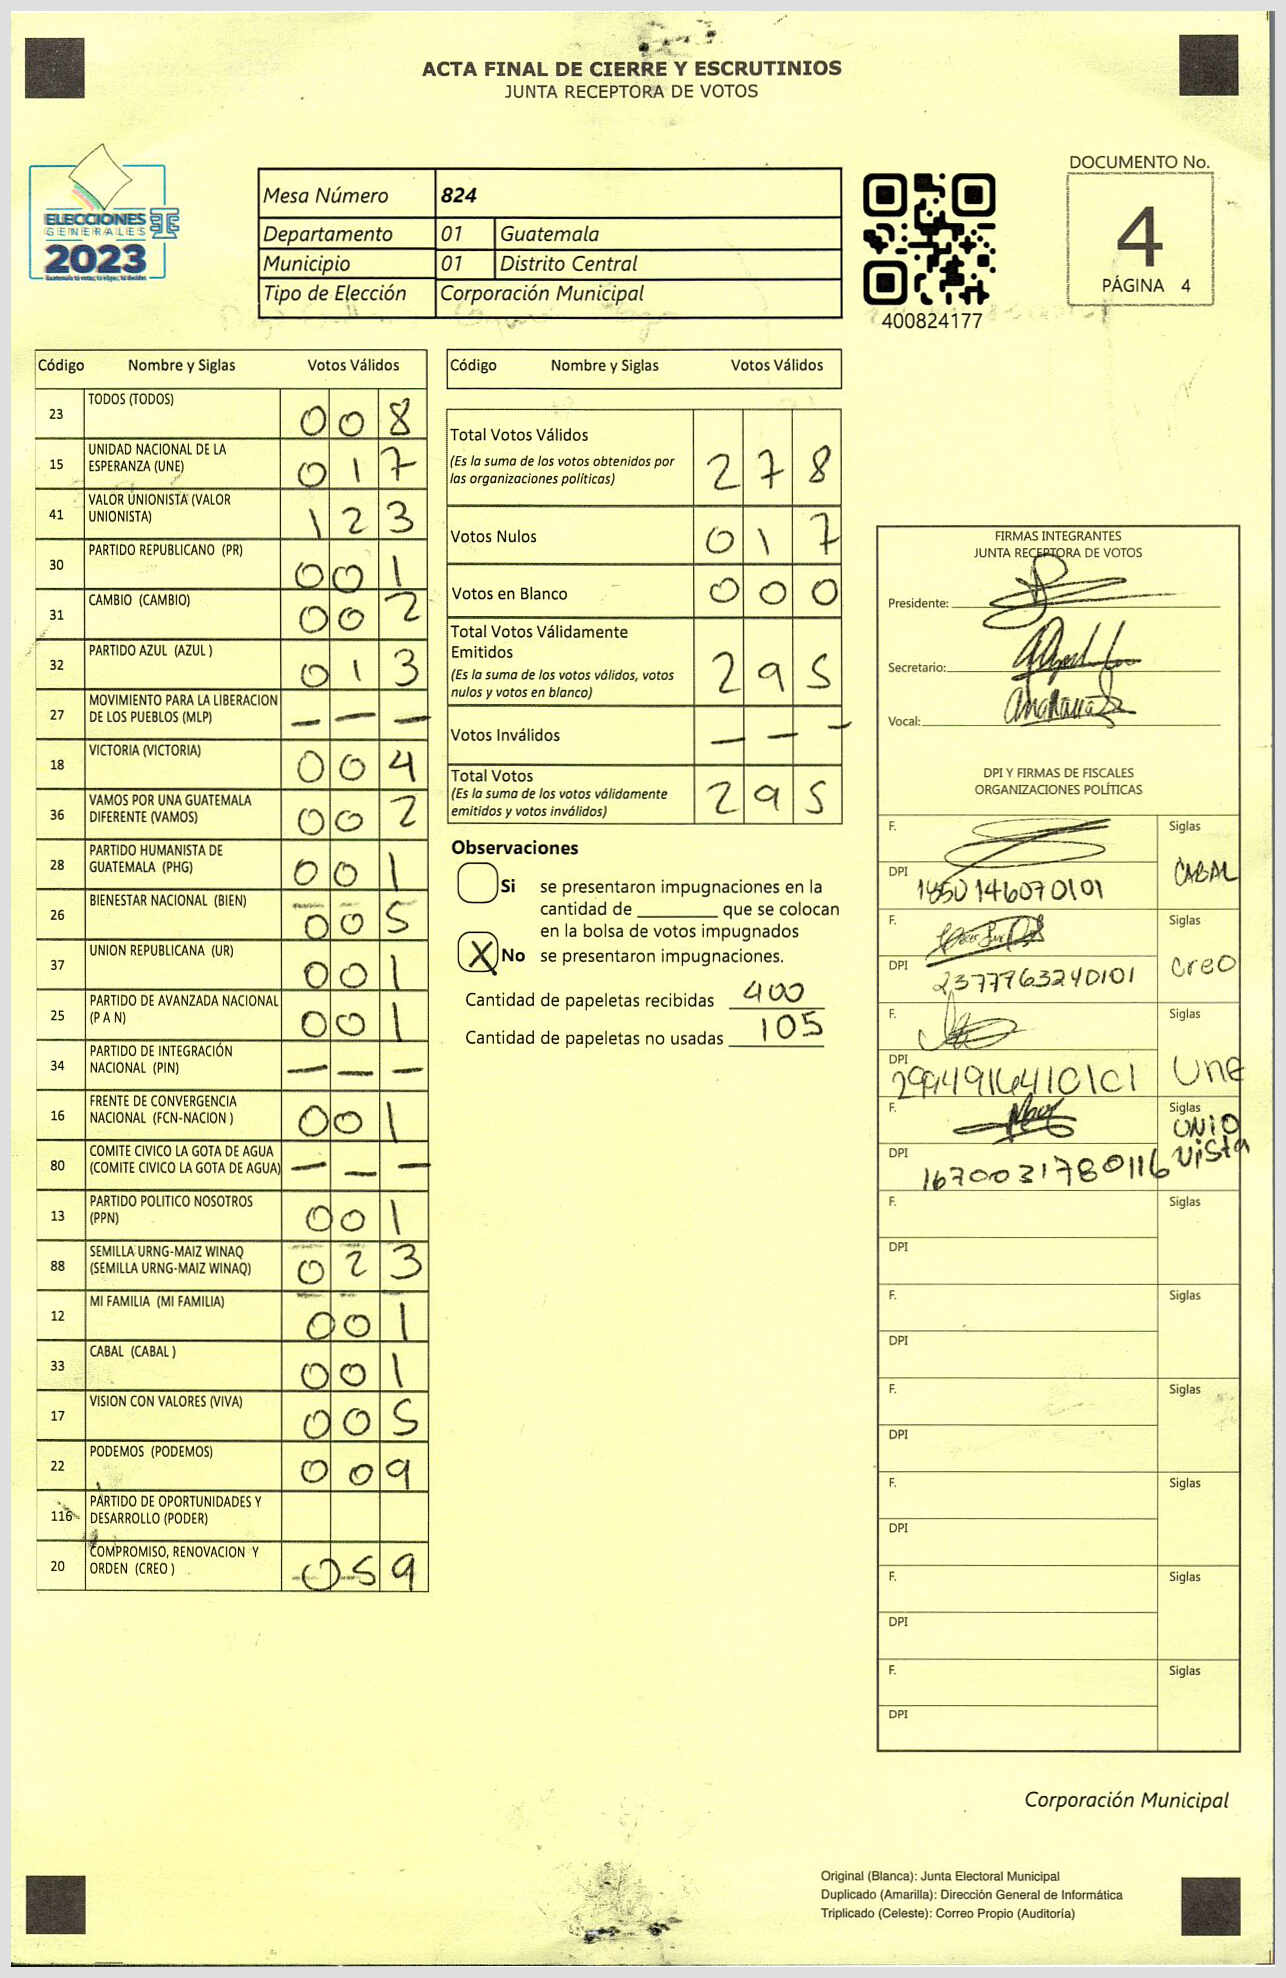 ACTA FINAL DE CIERRE Y ESCRUTINIOS
JUNTA RECEPTORA DE VOTOS
ELECCIONES
GENERALES
2023
Guatemala tú votas, tú eliges, tú decides
Mesa Número 824
Departamento 01 Guatemala
Municipio 01 Distrito Central
Tipo de Elección Corporación Municipal
400824177
DOCUMENTO No.
4
PÁGINA 4
Código Nombre y Siglas Votos Válidos
23 TODOS (TODOS) 008
15 UNIDAD NACIONAL DE LA
ESPERANZA (UNE) 017
41 VALOR UNIONISTA (VALOR
UNIONISTA) 123
30 PARTIDO REPUBLICANO (PR) 001
31 CAMBIO (CAMBIO) 002
32 PARTIDO AZUL (AZUL ) 013
27 MOVIMIENTO PARA LA LIBERACION
DE LOS PUEBLOS (MLP) — — —
18 VICTORIA (VICTORIA) 004
36 VAMOS POR UNA GUATEMALA
DIFERENTE (VAMOS) 002
28 PARTIDO HUMANISTA DE
GUATEMALA (PHG) 001
26 BIENESTAR NACIONAL (BIEN) 005
37 UNION REPUBLICANA (UR) 001
25 PARTIDO DE AVANZADA NACIONAL
(P A N) 001
34 PARTIDO DE INTEGRACIÓN
NACIONAL (PIN) — — —
16 FRENTE DE CONVERGENCIA
NACIONAL (FCN-NACION ) 001
80 COMITE CIVICO LA GOTA DE AGUA
(COMITE CIVICO LA GOTA DE AGUA) — — —
13 PARTIDO POLITICO NOSOTROS
(PPN) 001
88 SEMILLA URNG-MAIZ WINAQ
(SEMILLA URNG-MAIZ WINAQ) 023
12 MI FAMILIA (MI FAMILIA) 001
33 CABAL (CABAL ) 001
17 VISION CON VALORES (VIVA) 005
22 PODEMOS (PODEMOS) 009
116 PARTIDO DE OPORTUNIDADES Y
DESARROLLO (PODER)
20 COMPROMISO, RENOVACION Y
ORDEN (CREO ) 059
Código Nombre y Siglas Votos Válidos
Total Votos Válidos
(Es la suma de los votos obtenidos por
las organizaciones políticas) 278
Votos Nulos 017
Votos en Blanco 000
Total Votos Válidamente
Emitidos
(Es la suma de los votos válidos, votos
nulos y votos en blanco) 295
Votos Inválidos — — —
Total Votos
(Es la suma de los votos válidamente
emitidos y votos inválidos) 295
Observaciones
Si se presentaron impugnaciones en la
cantidad de ________ que se colocan
en la bolsa de votos impugnados
X No se presentaron impugnaciones.
Cantidad de papeletas recibidas 400
Cantidad de papeletas no usadas 105
FIRMAS INTEGRANTES
JUNTA RECEPTORA DE VOTOS
Presidente:
Secretario:
Vocal:
DPI Y FIRMAS DE FISCALES
ORGANIZACIONES POLÍTICAS
F. Siglas
CABAL
DPI 1850146070101
F. Siglas
Creo
DPI 2377963240101
F. Siglas
Une
DPI 2994916410101
F. Siglas
UNIO
Vista
DPI 1670031780116
F. Siglas
DPI
F. Siglas
DPI
F. Siglas
DPI
F. Siglas
DPI
F. Siglas
DPI
F. Siglas
DPI
Corporación Municipal
Original (Blanca): Junta Electoral Municipal
Duplicado (Amarilla): Dirección General de Informática
Triplicado (Celeste): Correo Propio (Auditoría)